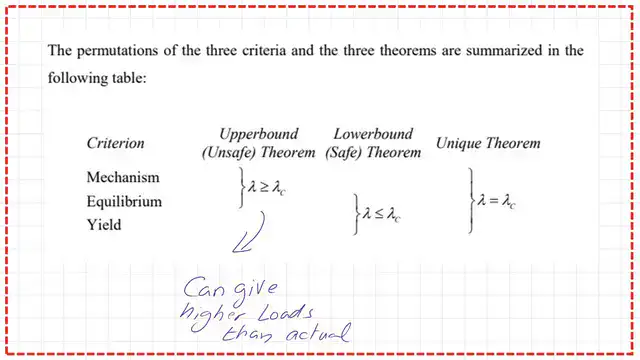 The permutations of the three criteria and the three theorems are summarized in the
following table:
Criterion
Upperbound (Unsafe) Theorem
Lowerbound (Safe) Theorem
Unique Theorem
Mechanism
Equilibrium
Yield
λ ≥ λc
λ ≤ λc
λ = λc
Can give
higher Loads
than actual